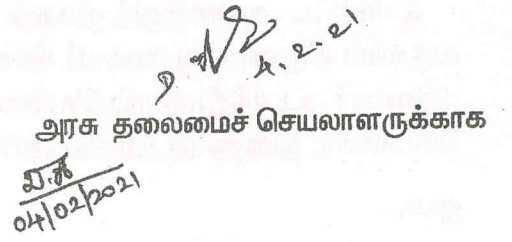 4.2.21
அரசு தலைமைச் செயலாளருக்காக
04/02/2021